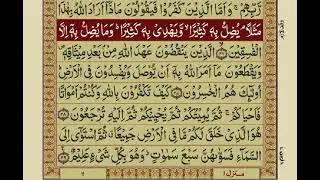 رَّبِّهِمْ ۚ وَاَمَّا الَّذِيْنَ كَفَرُوْا فَيَقُوْلُوْنَ مَاذَاۤ اَرَادَ اللّٰهُ بِهٰذَا
مَثَلًا ۘ يُضِلُّ بِهٖ كَثِيْرًا ۙ وَّيَهْدِيْ بِهٖ كَثِيْرًا ؕ وَمَا يُضِلُّ بِهٖۤ اِلَّا
الْفٰسِقِيْنَ ۙ﴿۲۶﴾ الَّذِيْنَ يَنْقُضُوْنَ عَهْدَ اللّٰهِ مِنْۢ بَعْدِ مِيْثَاقِهٖ ۪
وَيَقْطَعُوْنَ مَاۤ اَمَرَ اللّٰهُ بِهٖۤ اَنْ يُّوْصَلَ وَيُفْسِدُوْنَ فِي الْاَرْضِ ؕ
اُولٰٓئِكَ هُمُ الْخٰسِرُوْنَ ﴿۲۷﴾ كَيْفَ تَكْفُرُوْنَ بِاللّٰهِ وَكُنْتُمْ اَمْوَاتًا
فَاَحْيَاكُمْ ۚ ثُمَّ يُمِيْتُكُمْ ثُمَّ يُحْيِيْكُمْ ثُمَّ اِلَيْهِ تُرْجَعُوْنَ ﴿۲۸﴾
هُوَ الَّذِيْ خَلَقَ لَكُمْ مَّا فِي الْاَرْضِ جَمِيْعًا ۗ ثُمَّ اسْتَوٰۤى اِلَى
السَّمَآءِ فَسَوّٰىهُنَّ سَبْعَ سَمٰوٰتٍ ؕ وَهُوَ بِكُلِّ شَيْءٍ عَلِيْمٌ ﴿۲۹﴾
منزل ۱